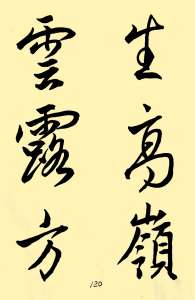 生高嶺
雲露方
120